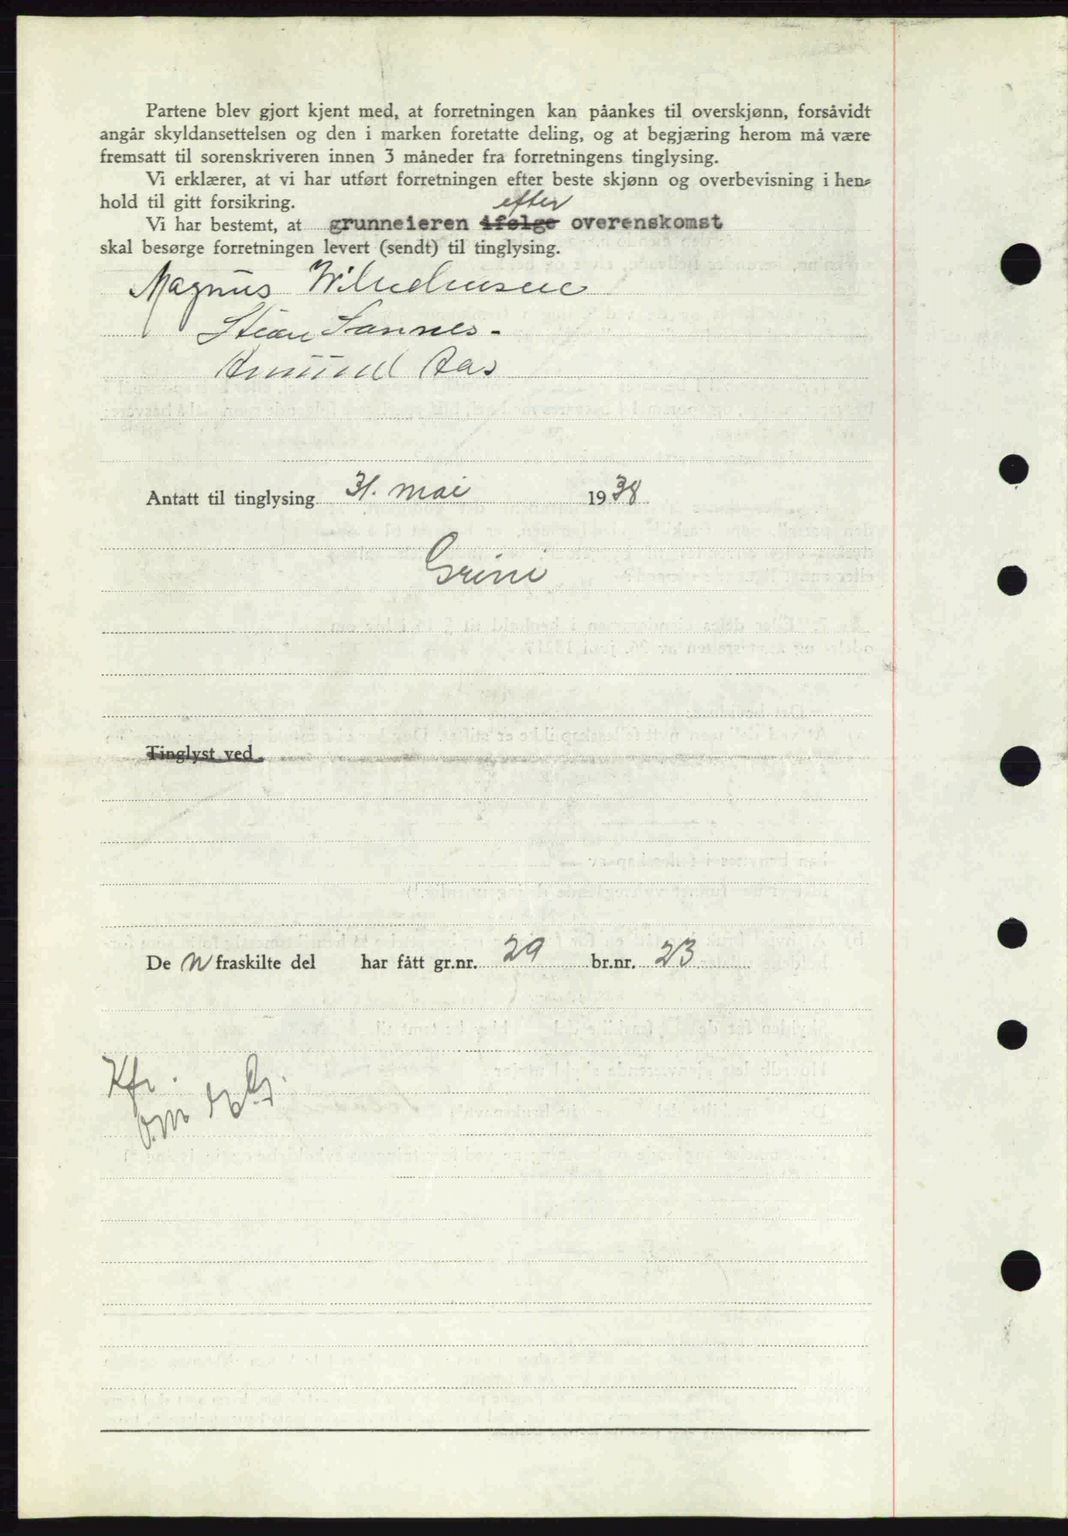 Partene blev gjort kjent med, at forretningen kan påankes til overskjønn, forsåvidt
angår skyldansettelsen og den i marken foretatte deling, og at begjæring herom må være
fremsatt til sorenskriveren innen 3 måneder fra forretningens tinglysing.
Vi erklærer, at vi har utført forretningen efter beste skjønn og overbevisning i hen-
hold til gitt forsikring.
efter
Vi har bestemt, at grunneieren ifølge overenskomst
skal besørge forretningen levert (sendt) til tinglysing.
Magnus Wilhelmsen
Stian Sannes.
Amund Aas
Antatt til tinglysing 31. mai 1938
Grini
Tinglyst ved
De n fraskilte del har fått gr.nr. 29 br.nr. 23
Kfr.